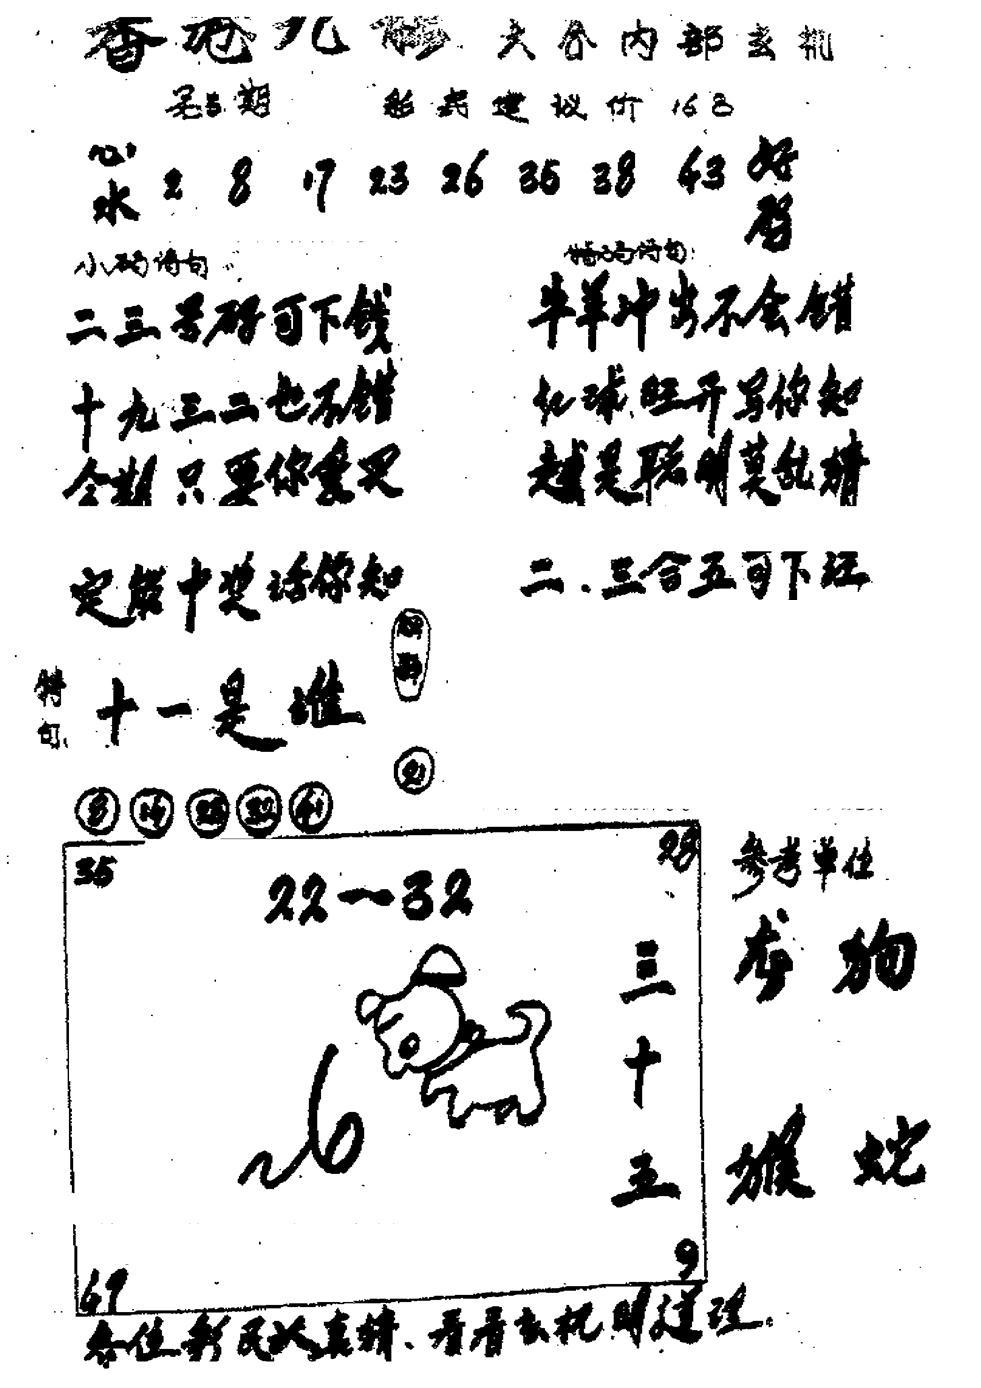 香港九龙 大合内部玄机
期 建议价 168
心水 2 8 17 23 26 35 38 43 好
小码诗句
特码诗句:
二三号码可下钱
牛羊冲出不会错
十九三二也不错
红球旺开写你知
今期只要你爱思
越是聪明莫乱猜
定能中奖话你知
二.三合五可下注
特句: 十一是谁
21
8 14 23 32 41
35 28
22-32
参考单位
三十五
龙 狗
猴 蛇
49 9
各位彩民认真猜、看看玄机明道理.